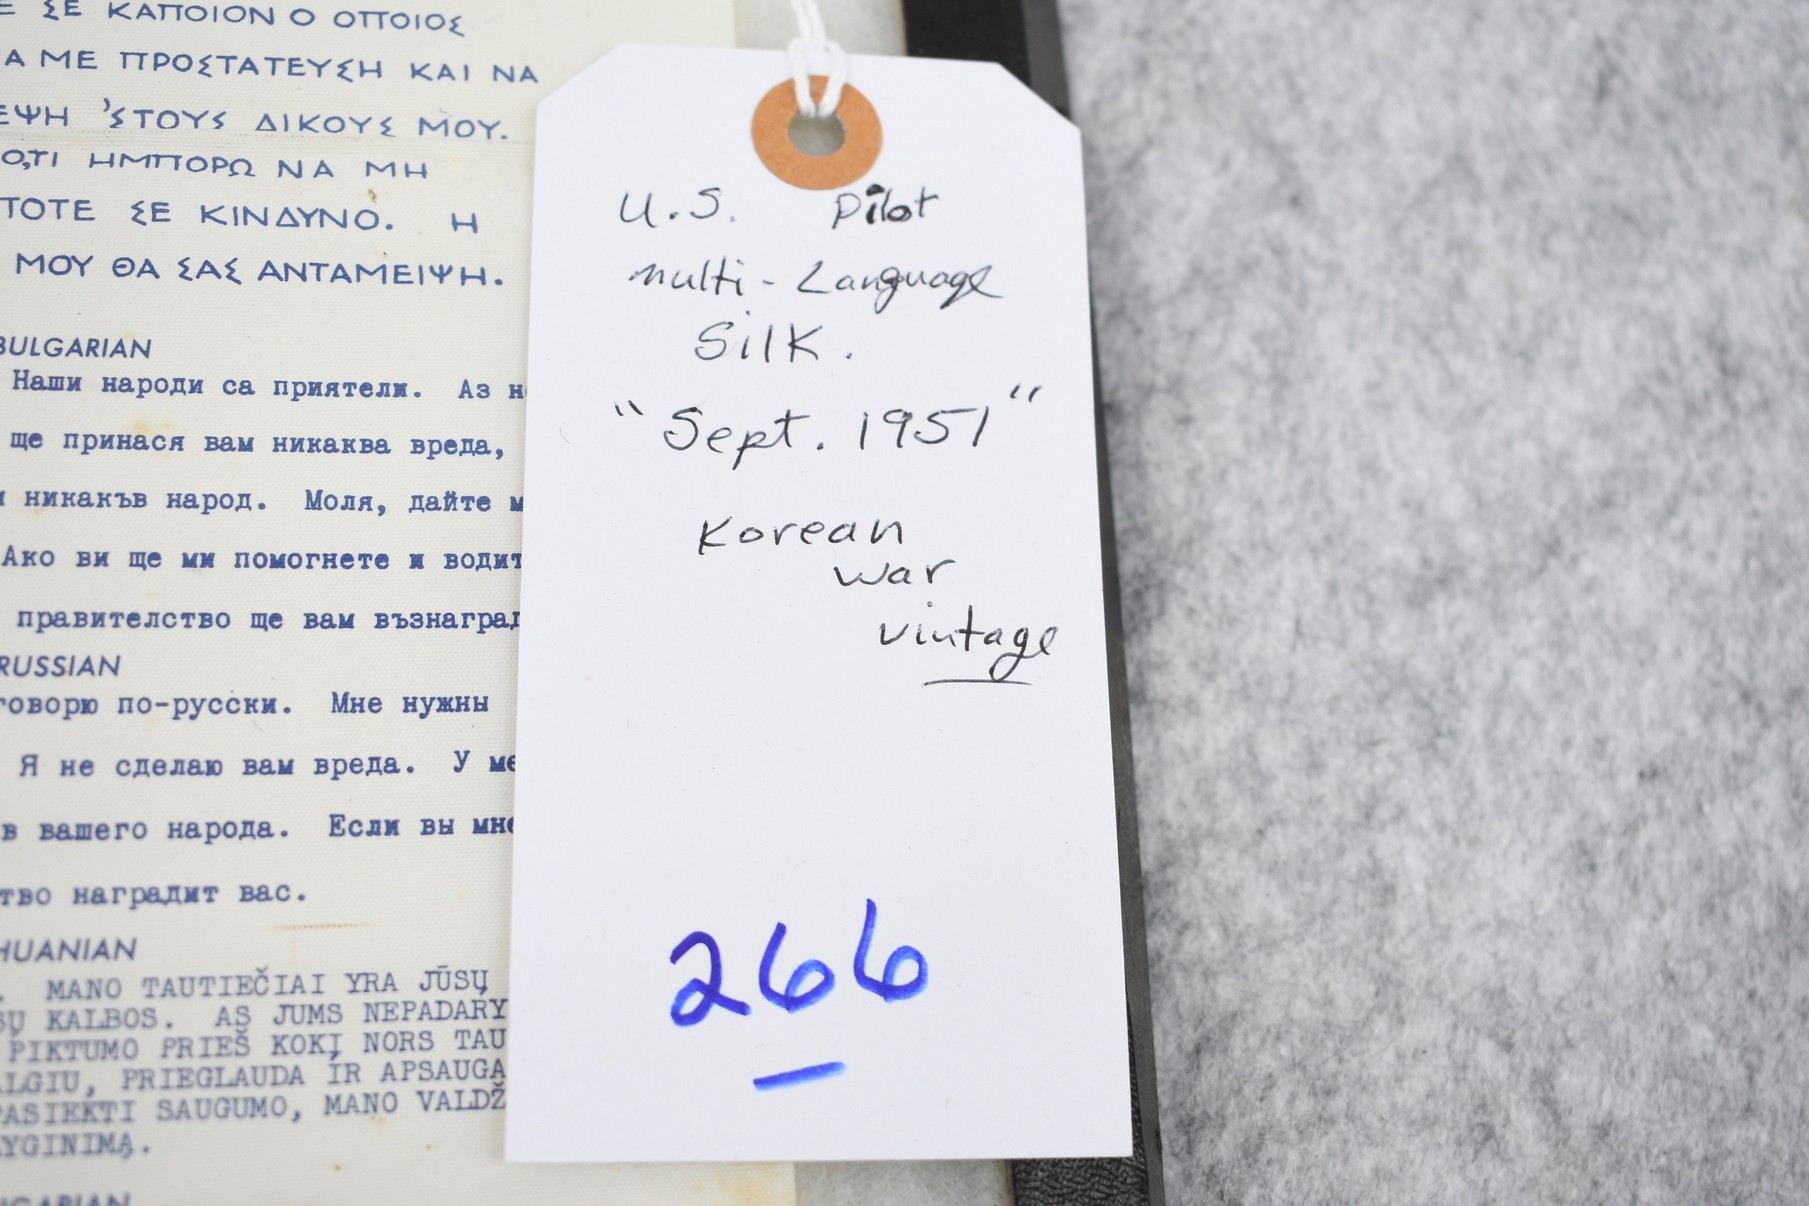 Ε ΣΕ ΚΑΠΟΙΟΝ Ο ΟΠΟΙΟΣ
Α ΜΕ ΠΡΟΣΤΑΤΕΥΣΗ ΚΑΙ ΝΑ
ΕΨΗ ᾽ΣΤΟΥΣ ΔΙΚΟΥΣ ΜΟΥ.
Ο,ΤΙ ΗΜΠΟΡΩ ΝΑ ΜΗ
ΤΟΤΕ ΣΕ ΚΙΝΔΥΝΟ. Η
ΜΟΥ ΘΑ ΣΑΣ ΑΝΤΑΜΕΙΨΗ.
BULGARIAN
Наши народи са приятели. Аз н
ще принася вам никаква вреда,
и никакъв народ. Моля, дайте м
Ако ви ще ми помогнете и водит
правителство ще вам възнаград
RUSSIAN
говорю по-русски. Мне нужны
Я не сделаю вам вреда. У ме
в вашего народа. Если вы мне
тво наградит вас.
HUANIAN
. MANO TAUTIEČIAI YRA JŪSŲ
SŲ KALBOS. AS JUMS NEPADARY
PIKTUMO PRIEŠ KOKĮ NORS TAU
ALGIU, PRIEGLAUDA IR APSAUGA
PASIEKTI SAUGUMO, MANO VALDŽ
YGINIMĄ.
NGARIAN
U.S. Pilot
multi-Language
Silk.
"Sept. 1951"
Korean
war
vintage
266